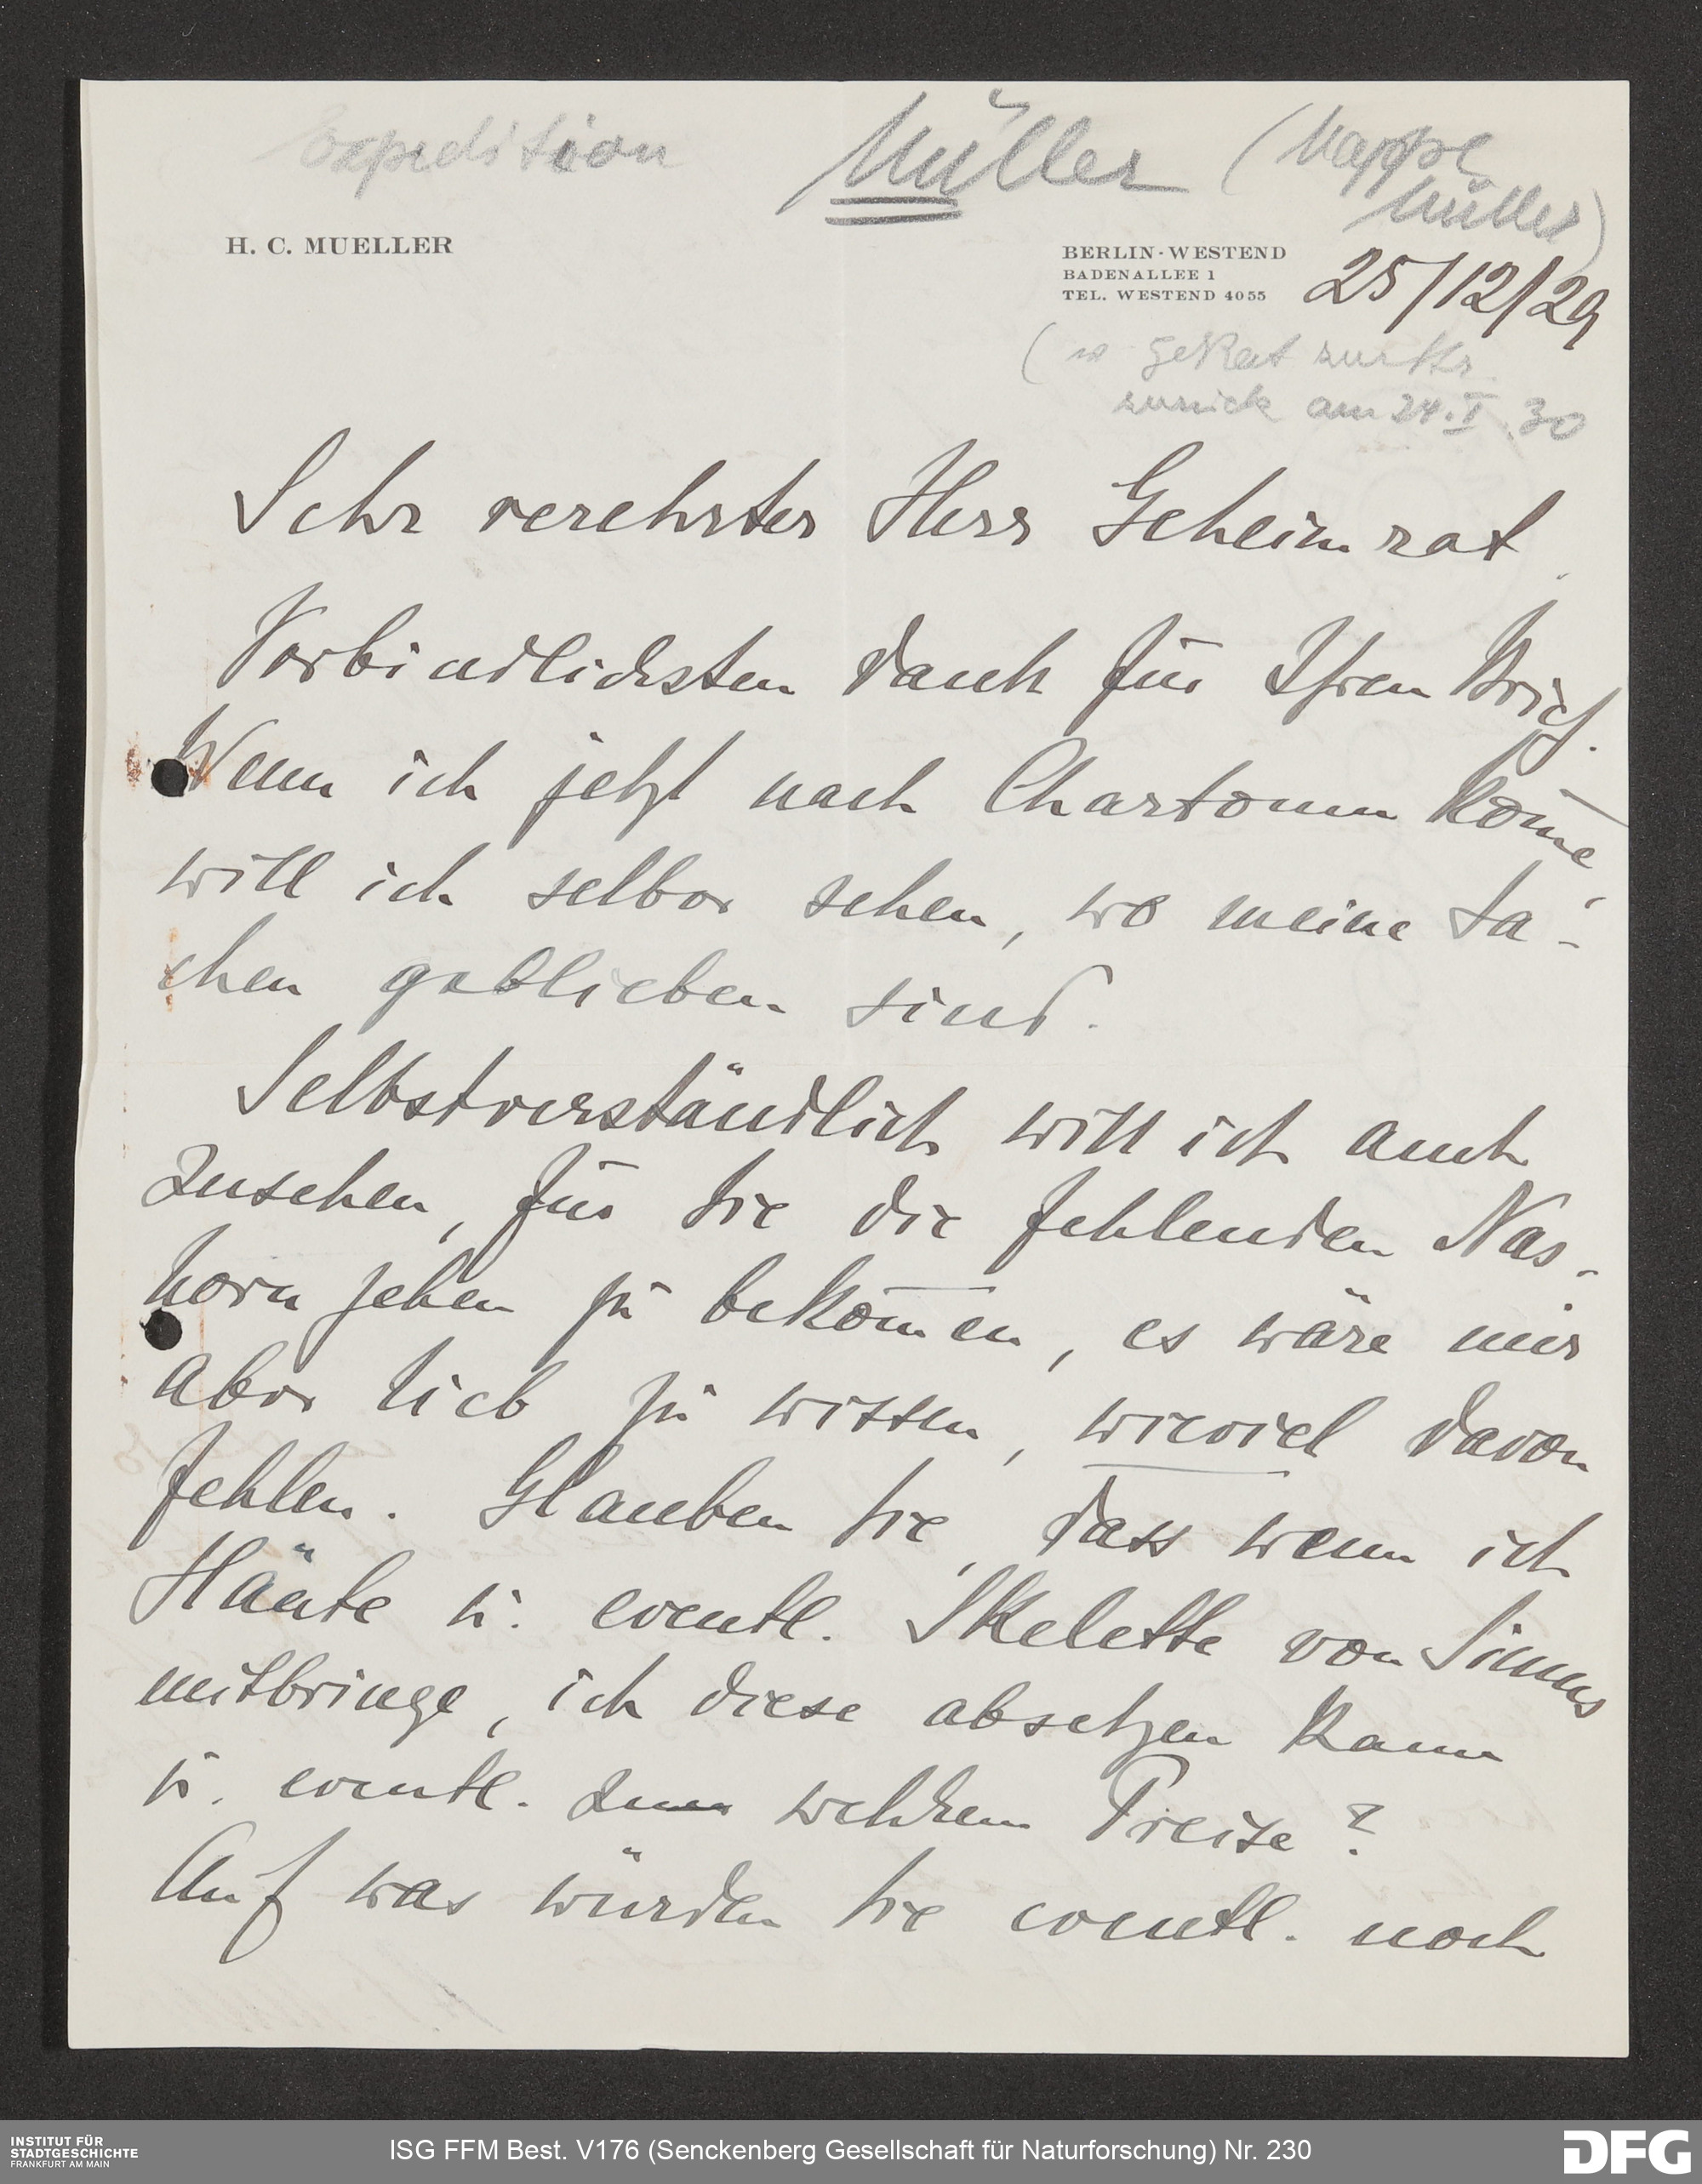 Expedition
Müller (Mappe
Müller)
H. C. MUELLER
BERLIN-WESTEND
BADENALLEE 1
TEL. WESTEND 4055
25/12/29
(
zurück am 24.I.30
Sehr verehrter Herr Geheimrat,
Verbindlichsten Dank für Ihren Brief.
Wenn ich jetzt nach Chartoum kom̄e,
will ich selber sehen, wo meine Sa-
chen geblieben sind.
Selbstverständlich will ich auch
zusehen, für Sie die fehlenden Nas-
hornzehen zu bekom̄en, es wäre mir
aber lieb zu wissen, wieviel davon
fehlen. Glauben Sie, dass wenn ich
Häute u. eventl. Skelette von Simus
mitbringe, ich diese absetzen kann
u. eventl. zum welchem Preise?
Auf was würden Sie eventl. noch
INSTITUT FÜR
STADTGESCHICHTE
FRANKFURT AM MAIN
ISG FFM Best. V176 (Senckenberg Gesellschaft für Naturforschung) Nr. 230
DFG